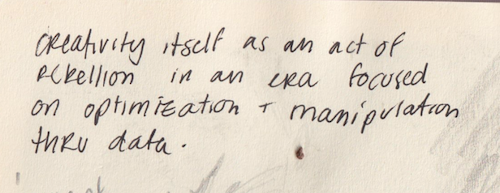 creativity itself as an act of
rebellion in an era focused
on optimization + manipulation
thru data.